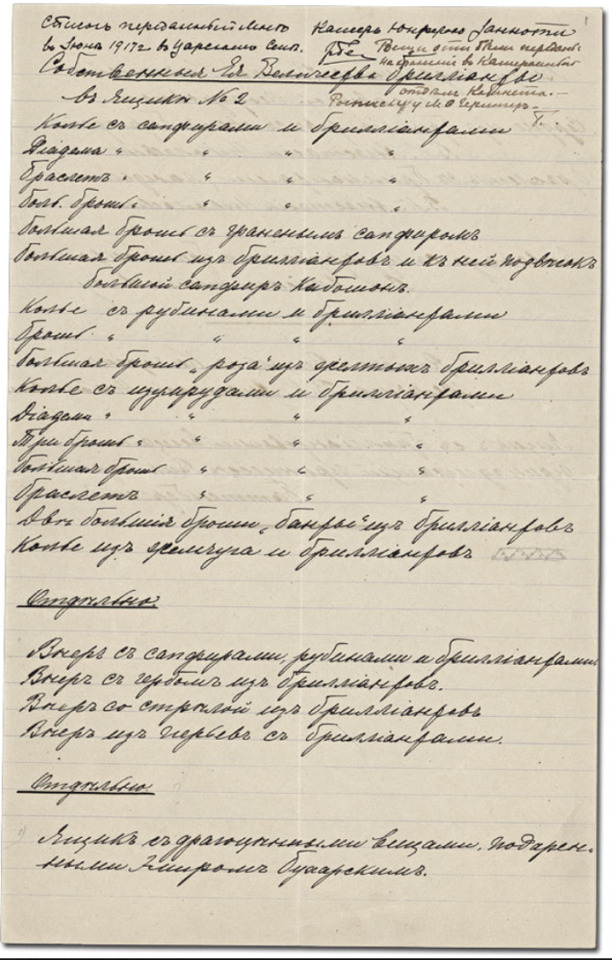 1
Списокъ переданный мнѣ Камеръ Юнгферою Занотти
въ Іюнѣ 1917 г. въ Царскомъ Селѣ. Вещи эти были переданы
на храненіе въ Камеральный
Собственныя Ея Величества брилліанты
отдѣлъ Кабинета.—
въ ящикѣ № 2
Росписку у М. Ѳ.
Колье съ сапфирами и брилліантами
Діадема " " " "
браслетъ " " " "
больш. брошь " " " "
большая брошь съ граненымъ сапфиромъ
большая брошь изъ брилліантовъ и къ ней подвѣсокъ
большой сапфиръ Кабошонъ.
Колье съ рубинами и брилліантами
брошь " " "
большая брошь "роза" изъ желтыхъ брилліантовъ
Колье съ изумрудами и брилліантами
Діадема " " "
Три броши " " "
большая брошь " " "
браслетъ " " "
Двѣ большія броши "банты" изъ брилліантовъ
Колье изъ жемчуга и брилліантовъ
Отдѣльно.
Вѣеръ съ сапфирами, рубинами и брилліантами
Вѣеръ съ гербомъ изъ брилліантовъ.
Вѣеръ со стрѣлой изъ брилліантовъ
Вѣеръ изъ перьевъ съ брилліантами.
Отдѣльно
Ящикъ съ драгоцѣнными вещами, подарен-
ными Эмиромъ Бухарскимъ.